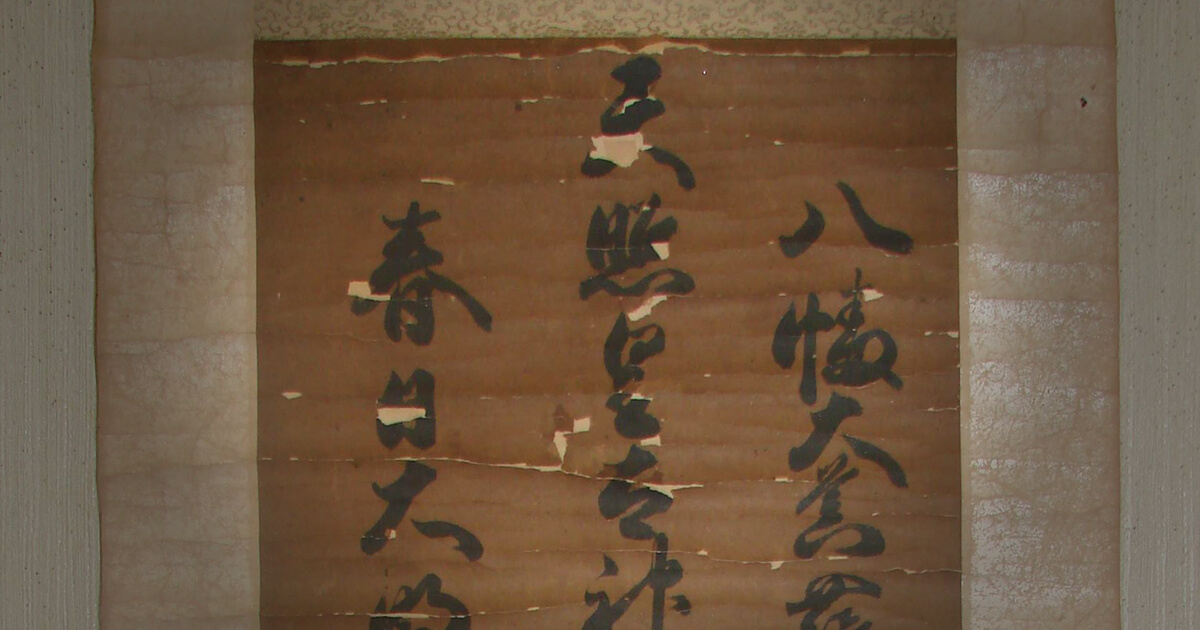 八幡大菩薩
天照皇太神
春日大明